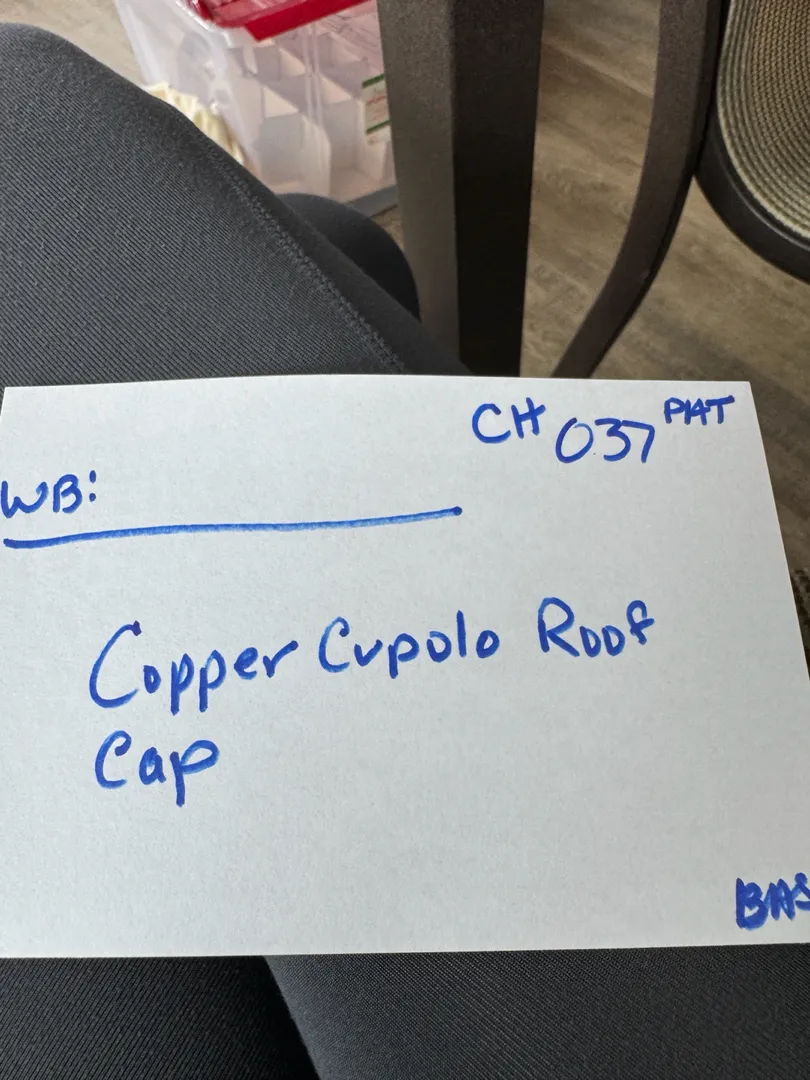 CH 037 PHT
WB:
Copper Cupolo Roof
Cap
BAS